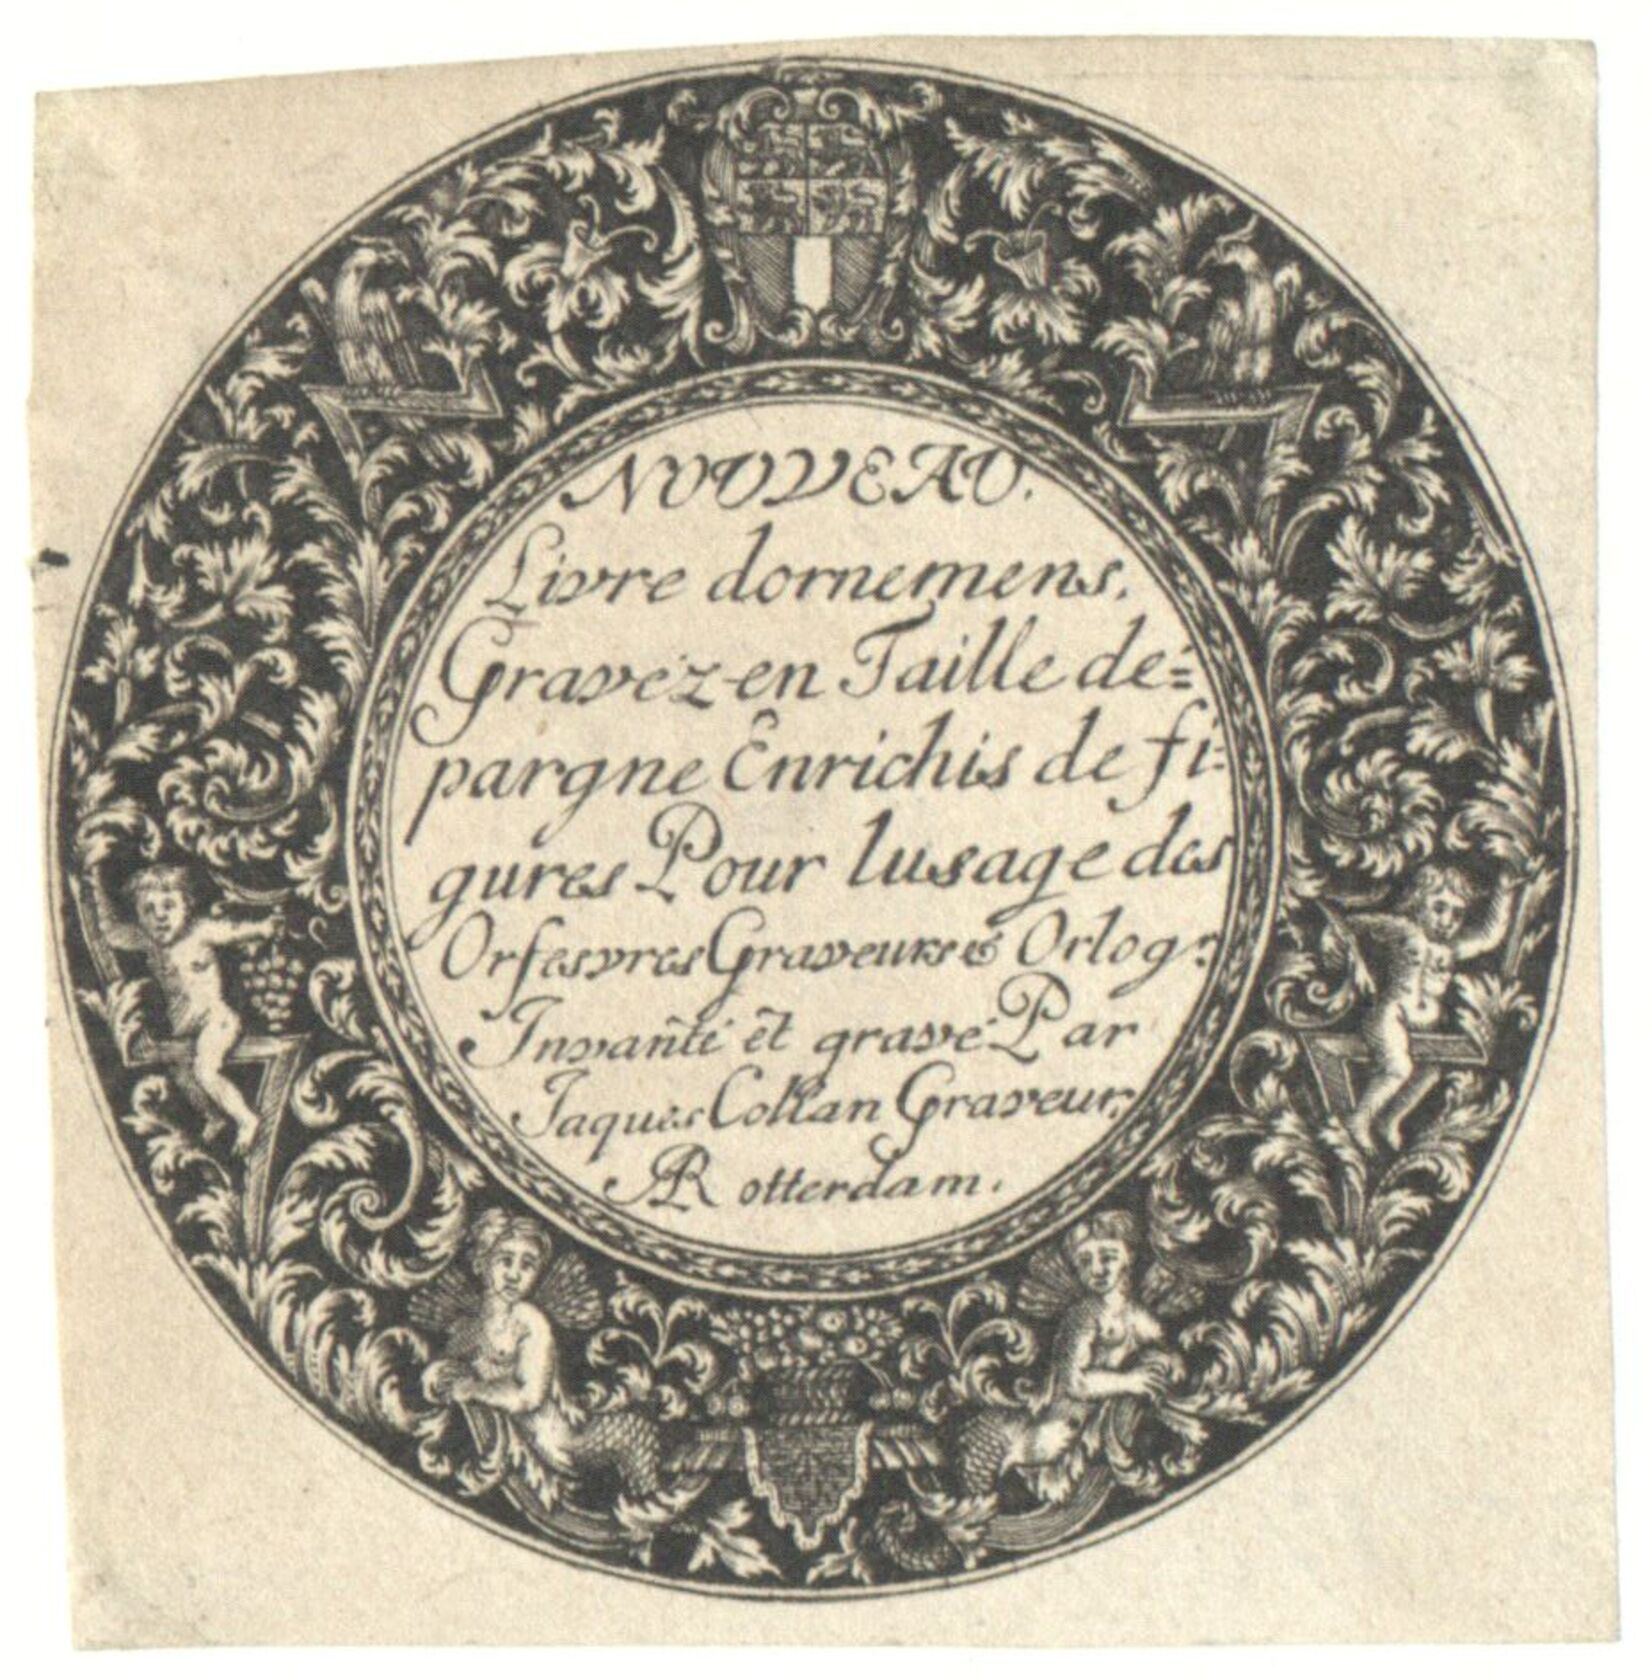 NOUVEAU.
Livre dornemens.
Gravéz en Taille de=
pargne Enrichis de fi=
gures Pour lusage des
Orfesvres Graveurs & Orlog:
Invanté et gravé Par
Jaques Collan Graveur,
A Rotterdam.